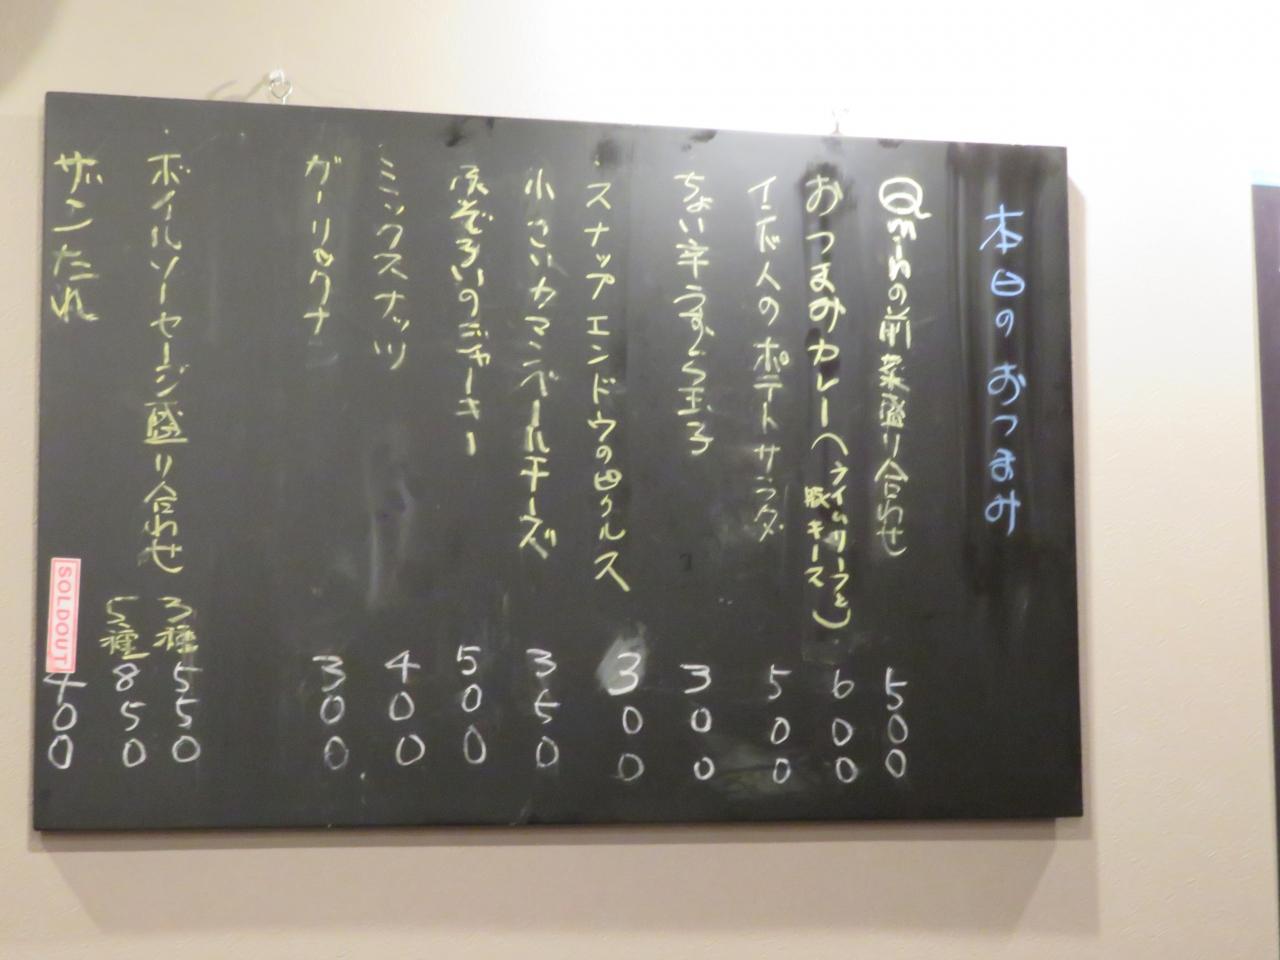 本日のおつまみ
Qminの前菜盛り合わせ 500
おつまみカレー(ライムリーフと豚キーマ) 600
インド人のポテトサラダ 500
ちょい辛うずら玉子 300
スナップエンドウの 300
小さいカマンベールチーズ 350
のジャーキー 500
ミックスナッツ 400
ガーリックナン 300
ボイルソーセージ盛り合わせ 3種 550
5種 850
ザンたれ 400
SOLDOUT